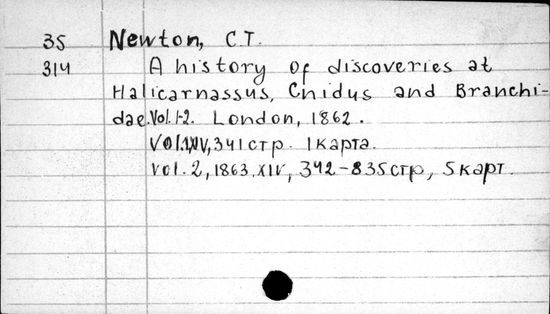 35 Newton, C.T.
314 A history of discoveries at
Halicarnassus, Cnidus and Branchi-
dae. Vol. 1-2. London, 1862.
Vol. 1, XIV, 341 стр. 1 карта.
Vol. 2, 1863, XIV, 342-835 стр, 5 карт.